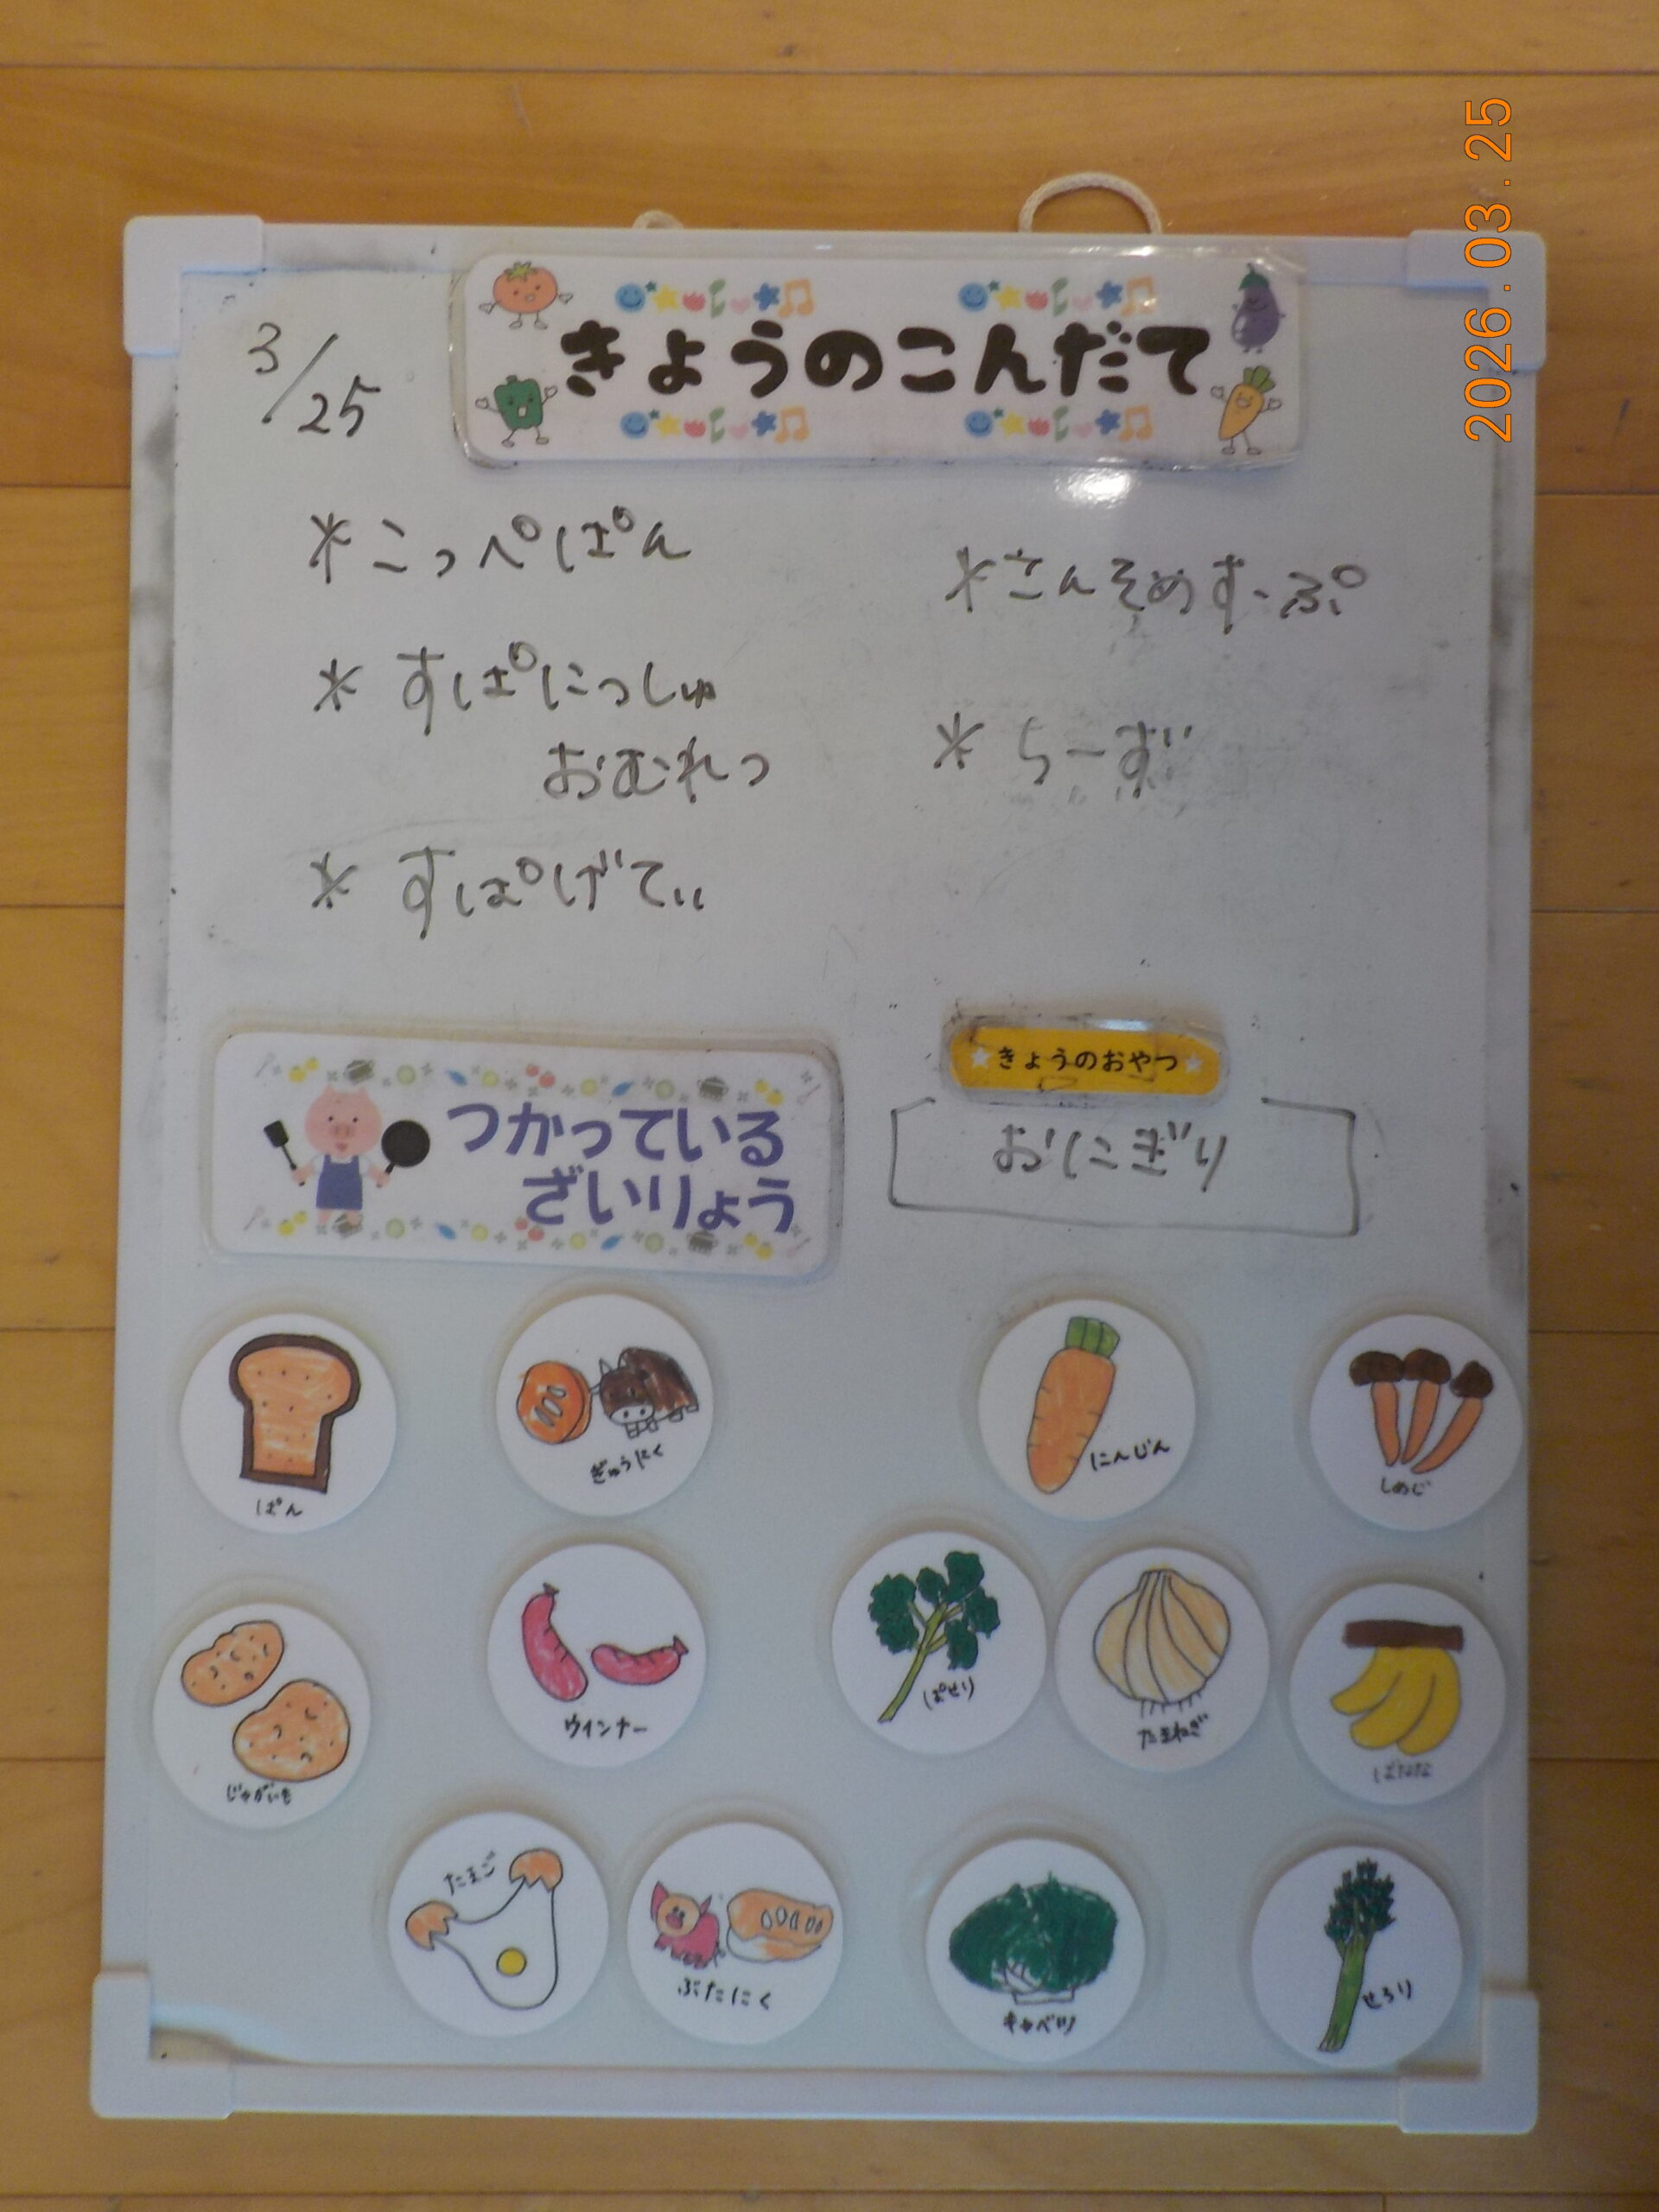 2026.03.25
3/25
きょうのこんだて
*こっぺぱん
*すぱにっしゅ
おむれつ
*すぱげてぃ
*こんそめすーぷ
*ちーず
きょうのおやつ
おにぎり
つかっている
ざいりょう
ぱん
ぎゅうにく
にんじん
しめじ
じゃがいも
ウインナー
ぱせり
たまねぎ
ばなな
たまご
ぶたにく
キャベツ
せろり